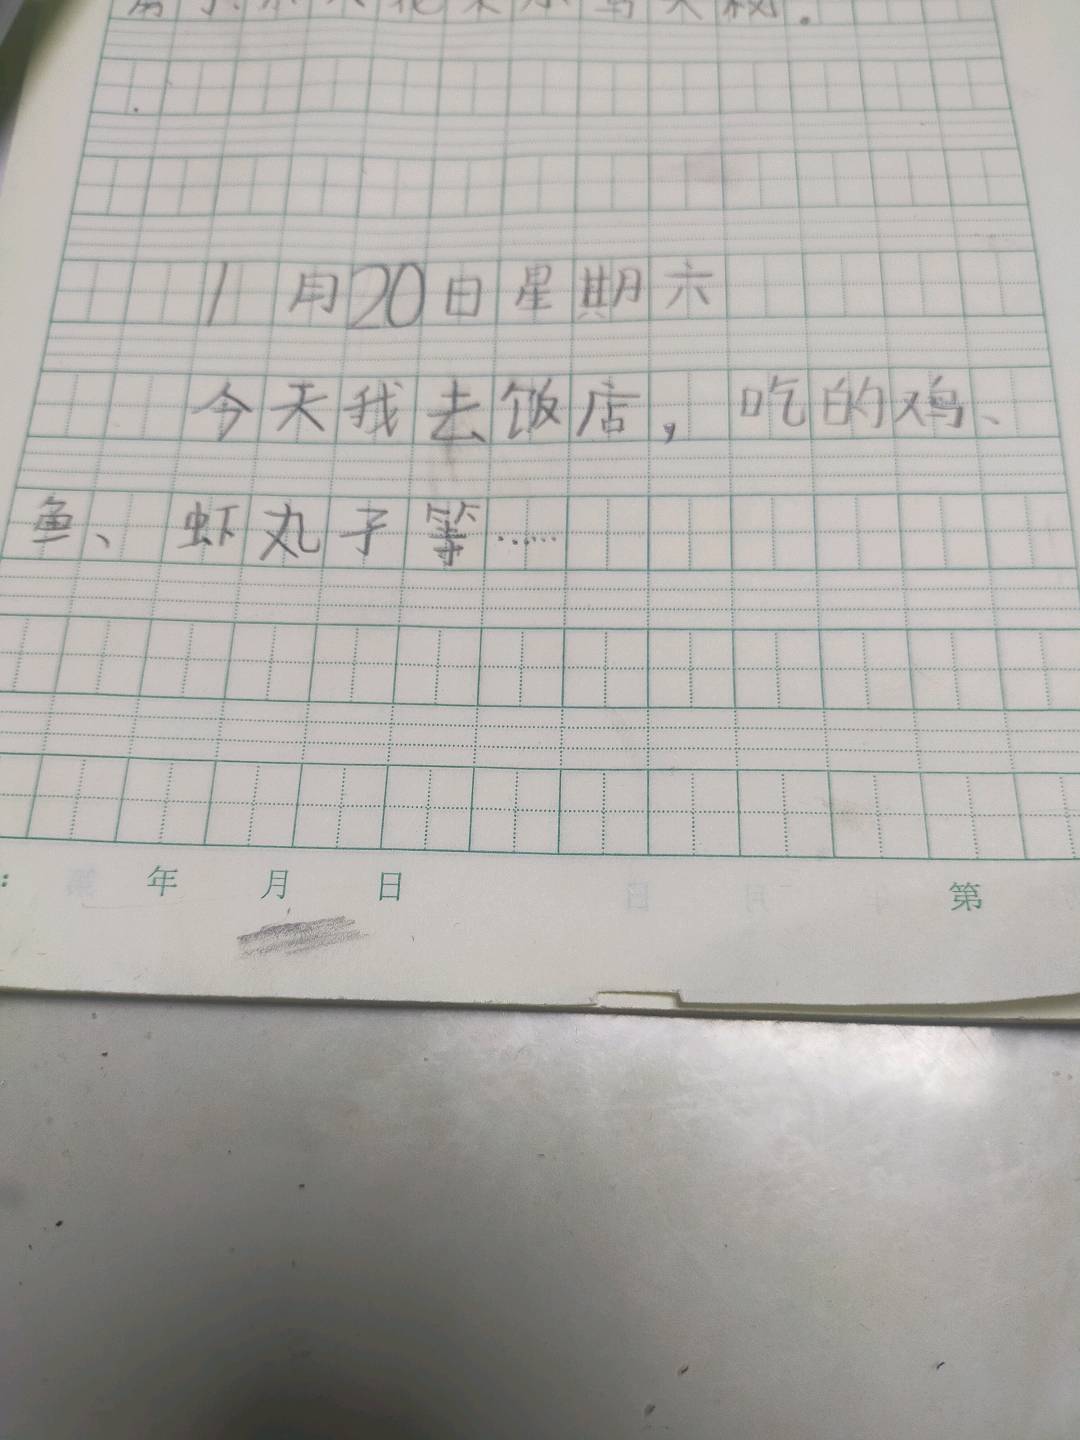 1月20日星期六
今天我去饭店，吃的鸡、
鱼、虾丸子等……
： 年 月 日 第